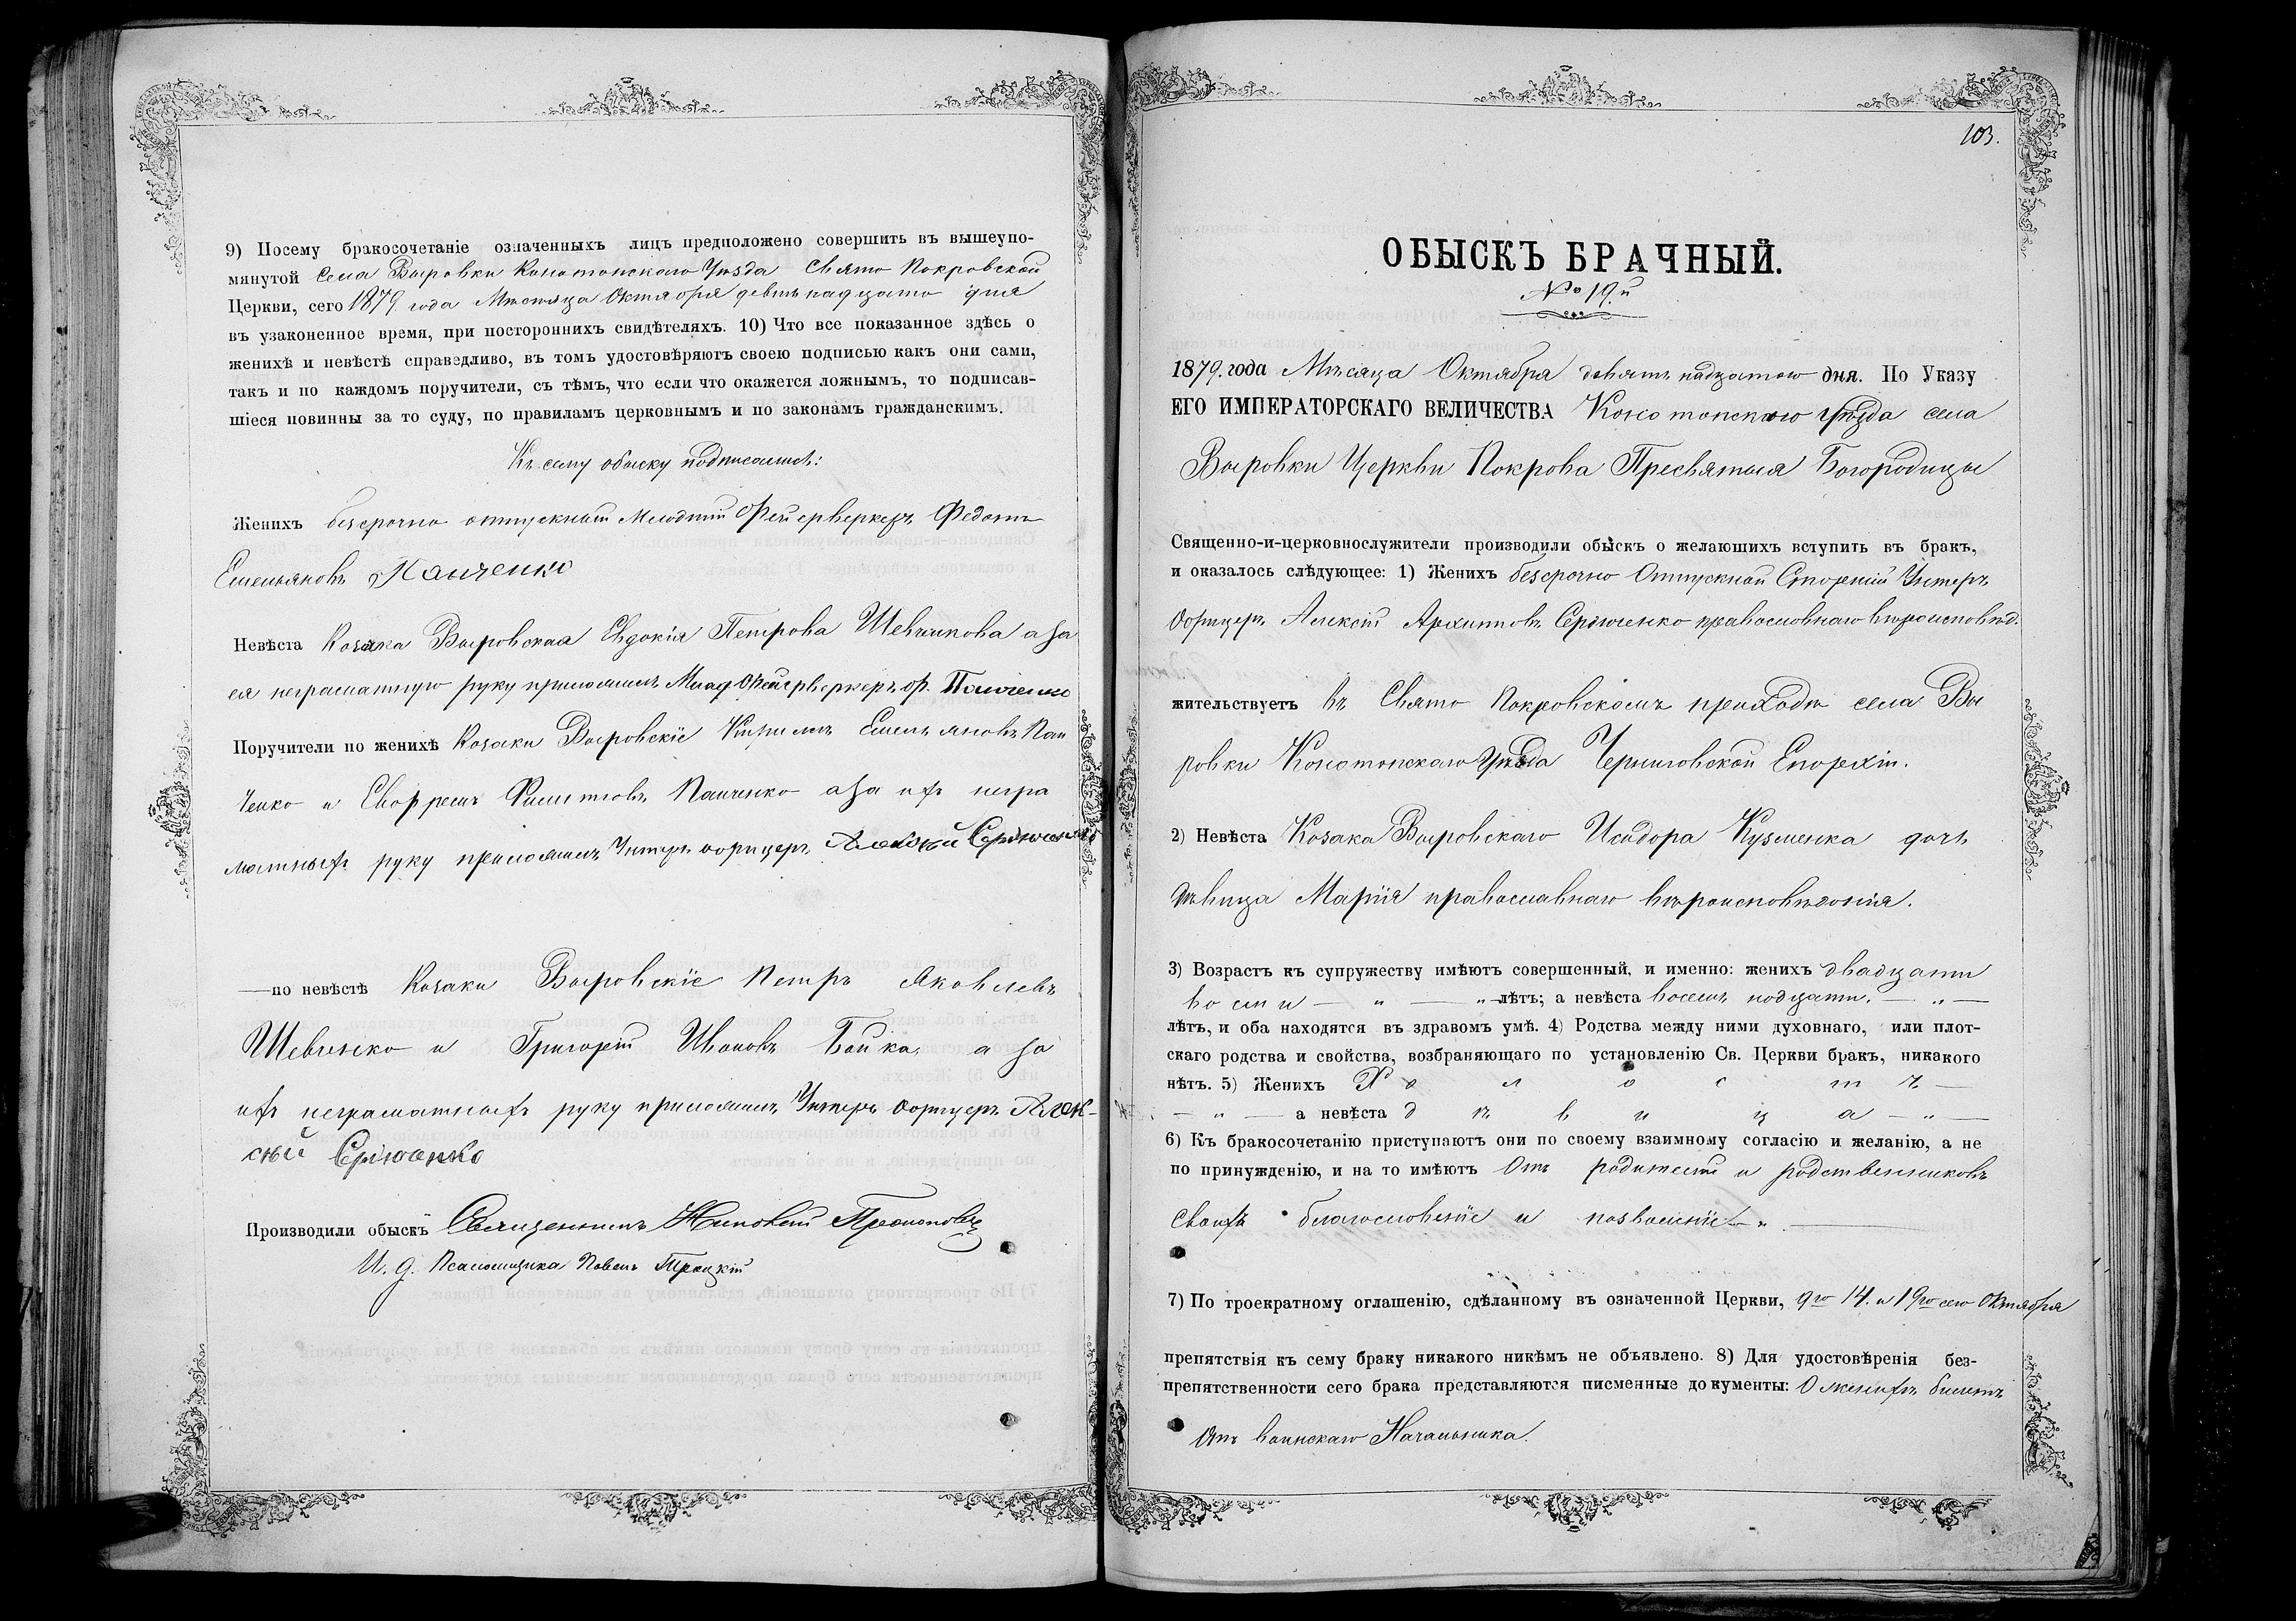 9) Посему бракосочетаніе означенныхъ лицъ предположено совершить въ вышеупо-
мянутой села Выровки Конотопскаго Уѣзда Свято Покровской
Церкви, сего 1879 года Мѣсяца Октября девятнадцато дня
въ узаконенное время, при постороннихъ свидѣтеляхъ. 10) Что все показанное здѣсь о
женихѣ и невѣстѣ справедливо, въ томъ удостовѣряютъ своею подписью какъ они сами,
такъ и по каждомъ поручители, съ тѣмъ, что если что окажется ложнымъ, то подписав-
шіеся повинны за то суду, по правиламъ церковнымъ и по законамъ гражданскимъ.
Къ сему обыску подписались:
Женихъ безсрочно отпускный Младшій Фейерверкеръ Федотъ
Емельяновъ Панченко
Невѣста Козачка Выровская Евдокія Петрова Шевчикова а за
ея неграматную руку приложилъ Млад Фейерверкеръ Ф. Панченко
Поручители по женихѣ Козаки Выровскіе Кирилъ Емельяновъ Пан
ченко и Филиповъ Панченко а за ихъ негра
матныхъ руку приложилъ Унтеръ офицеръ Алексѣй Сердюченко
—по невѣстѣ Козаки Выровскіе Петръ Яковлевъ
Шевченко и Григорій Ивановъ Бойко, а за
ихъ неграматныхъ руку приложилъ Унтеръ офицеръ Алек-
сѣй Сердюченко
Производили обыскъ Священникъ
И. д. Псаломщика Павелъ Троцкій
103.
ОБЫСКЪ БРАЧНЫЙ.
№ 19.й
1879. года Мѣсяца Октября девятнадцатого дня. По Указу
ЕГО ИМПЕРАТОРСКАГО ВЕЛИЧЕСТВА Конотопскаго Уѣзда села
Выровки Церкви Покрова Пресвятыя Богородицы
Священно-и-церковнослужители производили обыскъ о желающихъ вступить въ бракъ,
и оказалось слѣдующее: 1) Женихъ безсрочно Отпускной Старшій Унтеръ
Офицеръ Алексѣй Архиповъ Сердюченко православнаго вѣроисповѣд.
жительствуетъ въ Свято Покровскомъ приходѣ села Вы
ровки Конотопскаго Уѣзда Черниговской Епархіи.
2) Невѣста Козака Выровскаго Исидора Кузменка дочь
дѣвица Марія православнаго вѣроисповѣданія.
3) Возрастъ къ супружеству имѣютъ совершенный, и именно: женихъ двадцати
восми — " — " — лѣтъ; а невѣста восемнадцати. — " —
лѣтъ, и оба находятся въ здравомъ умѣ. 4) Родства между ними духовнаго, или плот-
скаго родства и свойства, возбраняющаго по установленію Св. Церкви бракъ, никакого
нѣтъ. 5) Женихъ Х о л о с т ъ —
— " — а невѣста д ѣ в и ц а — " —
6) Къ бракосочетанію приступаютъ они по своему взаимному согласію и желанію, а не
по принужденію, и на то имѣютъ Отъ родителей и родственниковъ
своихъ благословеніе и позволеніе — " —
7) По троекратному оглашенію, сдѣланному въ означенной Церкви, 9го 14. и 19го сего Октября
препятствія къ сему браку никакого никѣмъ не объявлено. 8) Для удостовѣренія без-
препятственности сего брака представляются писменные документы: О женихѣ билетъ
Отъ воинскаго Начальника.